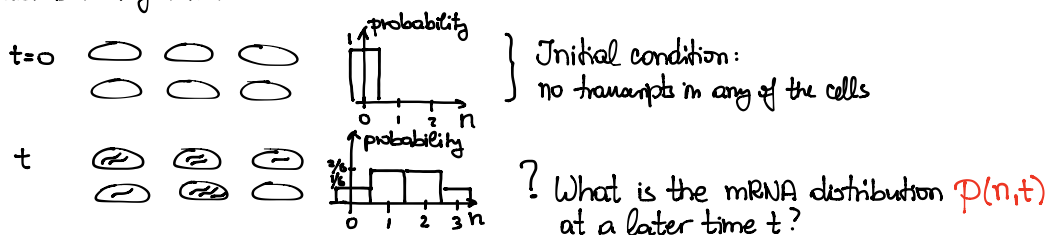 t=0
probability
1
0 1 2 n
Initial condition:
no transcripts in any of the cells
t
probability
2/6
1/6
0 1 2 3 n
? What is the mRNA distribution p(n,t)
at a later time t?